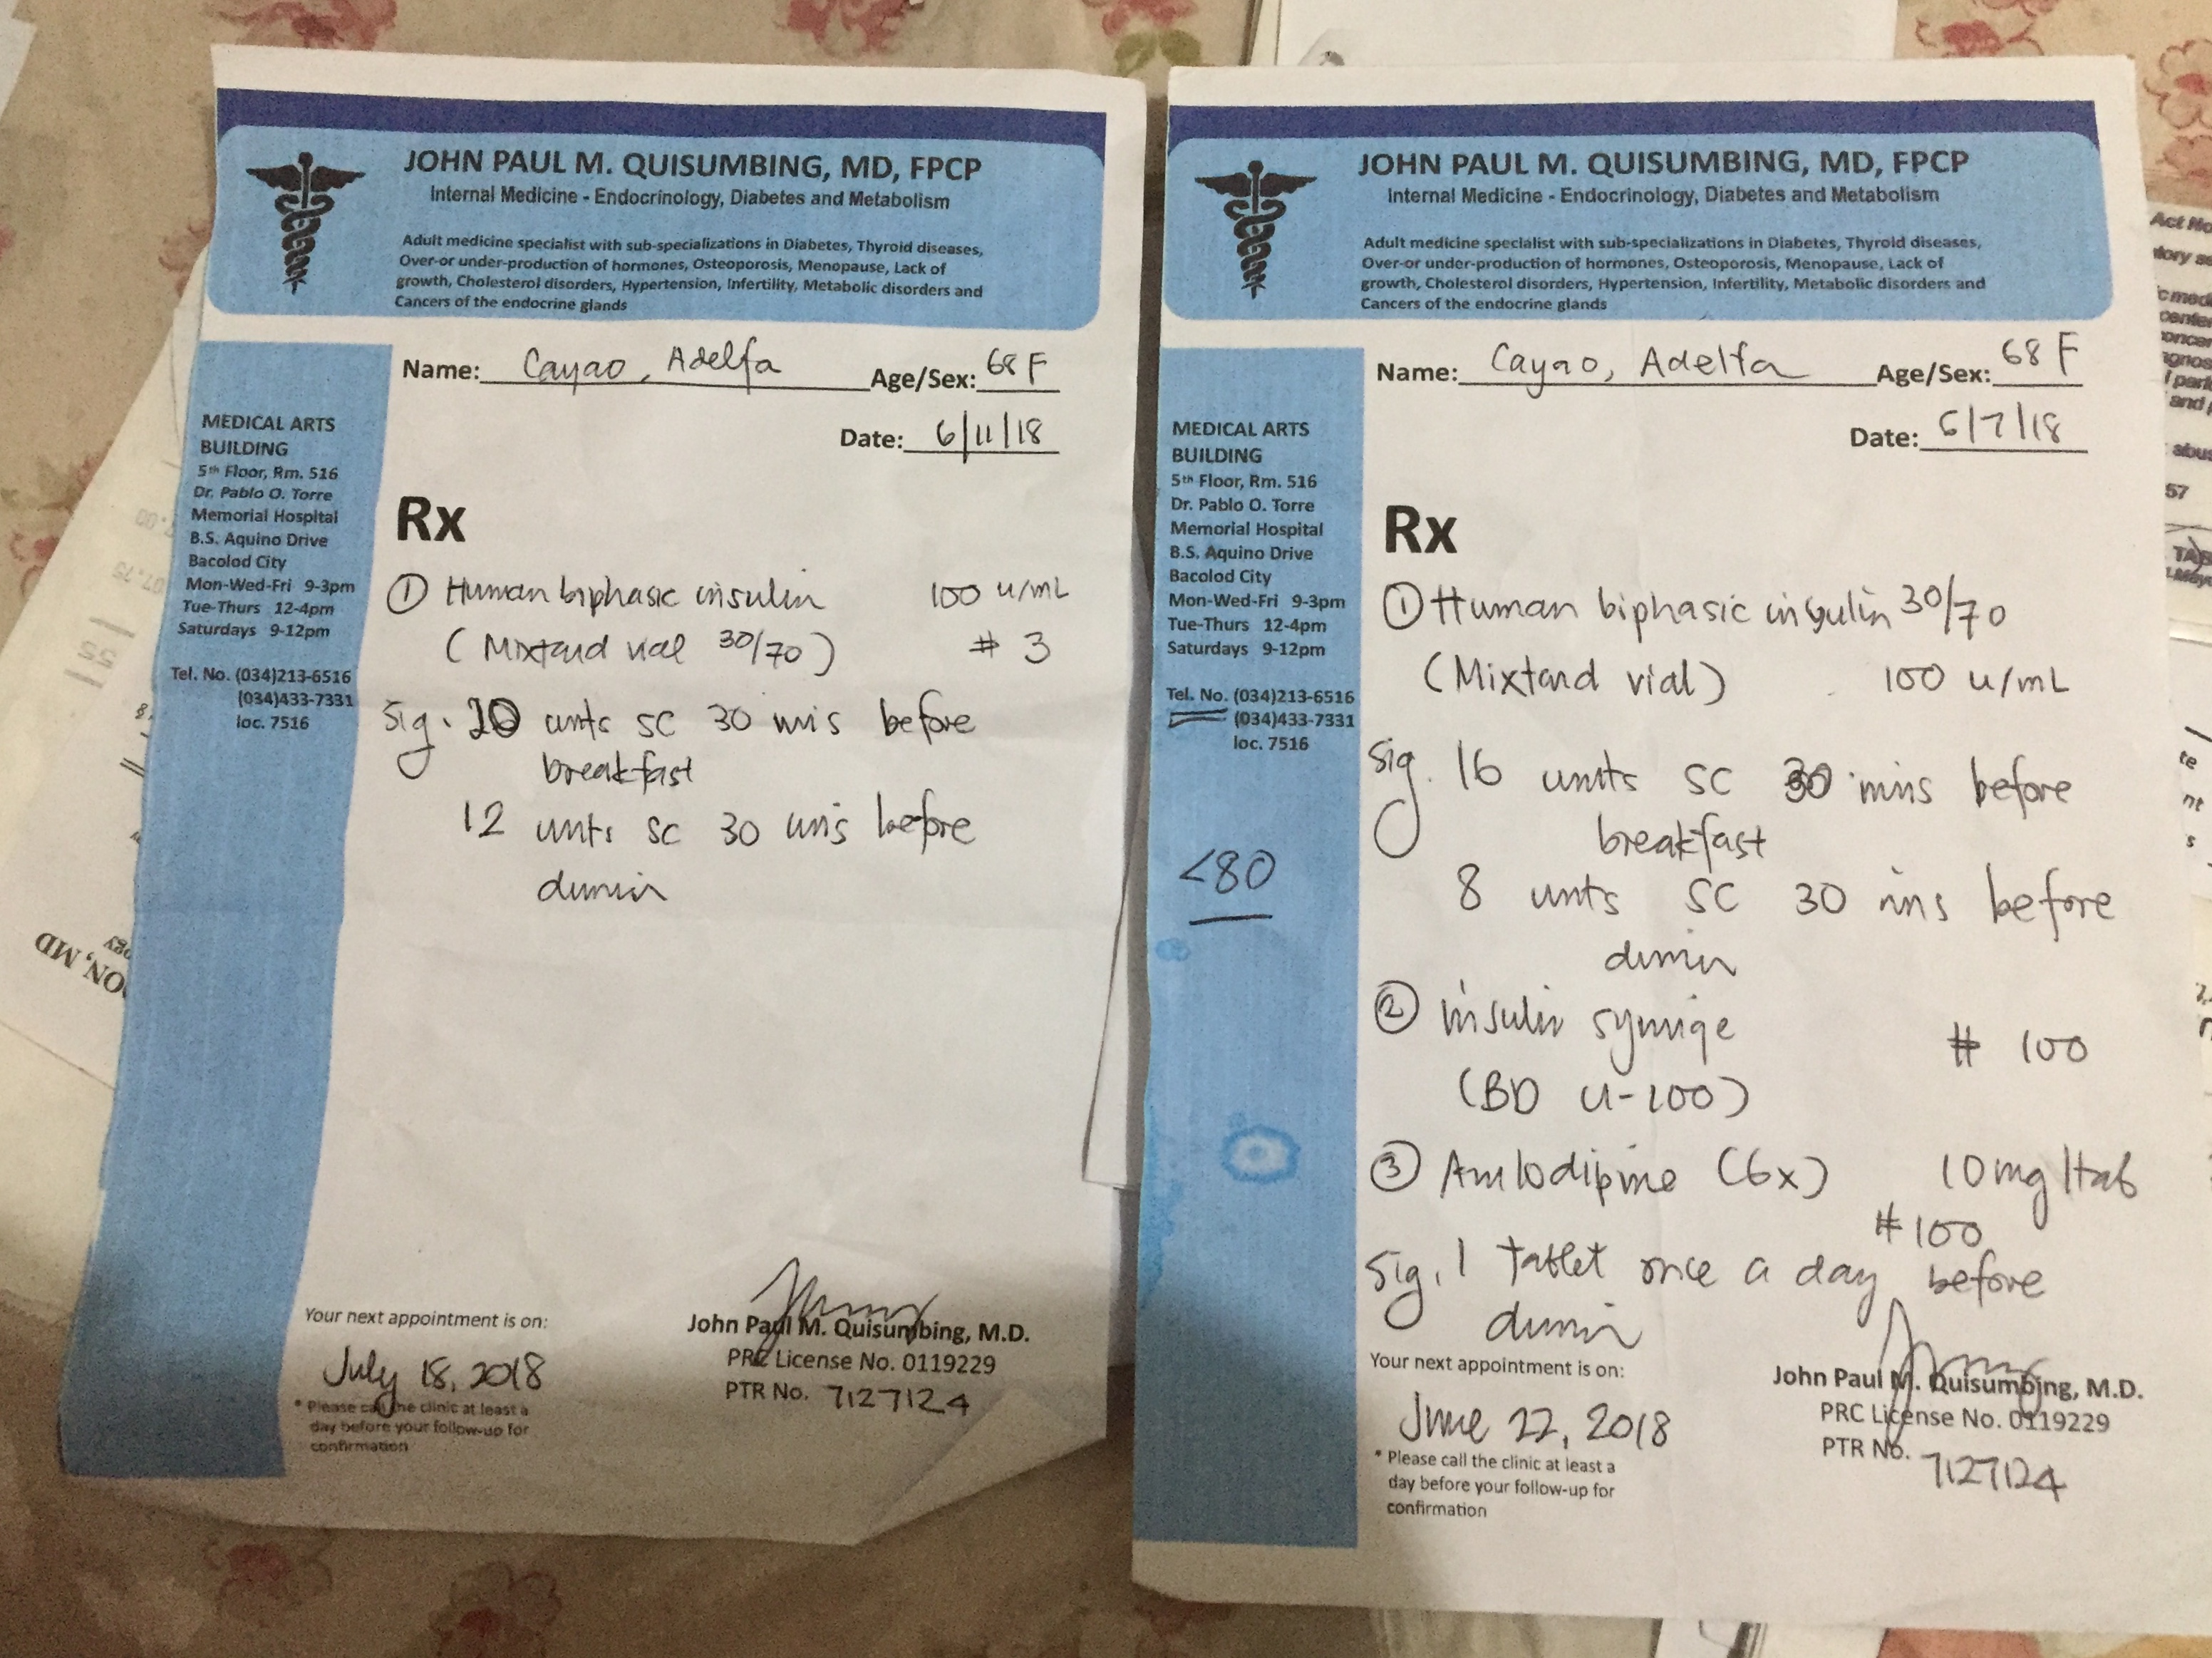 JOHN PAUL M. QUISUMBING, MD, FPCP
Internal Medicine - Endocrinology, Diabetes and Metabolism
Adult medicine specialist with sub-specializations in Diabetes, Thyroid diseases,
Over-or under-production of hormones, Osteoporosis, Menopause, Lack of
growth, Cholesterol disorders, Hypertension, Infertility, Metabolic disorders and
Cancers of the endocrine glands
Name: Cayao, Adelfa Age/Sex: 68 F
Date: 6/11/18
MEDICAL ARTS
BUILDING
5th Floor, Rm. 516
Dr. Pablo O. Torre
Memorial Hospital
B.S. Aquino Drive
Bacolod City
Mon-Wed-Fri 9-3pm
Tue-Thurs 12-4pm
Saturdays 9-12pm
Tel. No. (034)213-6516
(034)433-7331
loc. 7516
Rx
① Human biphasic insulin 100 u/mL
(Mixtard vial 30/70) # 3
Sig. 20 units SC 30 mins before
breakfast
12 units SC 30 mins before
dinner
Your next appointment is on:
July 18, 2018
* Please call the clinic at least a
day before your follow-up for
confirmation
John Paul M. Quisumbing, M.D.
PRC License No. 0119229
PTR No. 7127124
JOHN PAUL M. QUISUMBING, MD, FPCP
Internal Medicine - Endocrinology, Diabetes and Metabolism
Adult medicine specialist with sub-specializations in Diabetes, Thyroid diseases,
Over-or under-production of hormones, Osteoporosis, Menopause, Lack of
growth, Cholesterol disorders, Hypertension, Infertility, Metabolic disorders and
Cancers of the endocrine glands
Name: Cayao, Adelfa Age/Sex: 68 F
Date: 6/7/18
MEDICAL ARTS
BUILDING
5th Floor, Rm. 516
Dr. Pablo O. Torre
Memorial Hospital
B.S. Aquino Drive
Bacolod City
Mon-Wed-Fri 9-3pm
Tue-Thurs 12-4pm
Saturdays 9-12pm
Tel. No. (034)213-6516
(034)433-7331
loc. 7516
<80
Rx
① Human biphasic insulin 30/70
(Mixtard vial) 100 u/mL
Sig. 16 units SC 30 mins before
breakfast
8 units SC 30 mins before
dinner
② insulin syringe # 100
(BD U-100)
③ Amlodipine (6x) 10mg/tab
#100
Sig. 1 tablet once a day before
dinner
Your next appointment is on:
June 22, 2018
* Please call the clinic at least a
day before your follow-up for
confirmation
John Paul M. Quisumbing, M.D.
PRC License No. 0119229
PTR No. 7127124
ON, MD
Act No
57